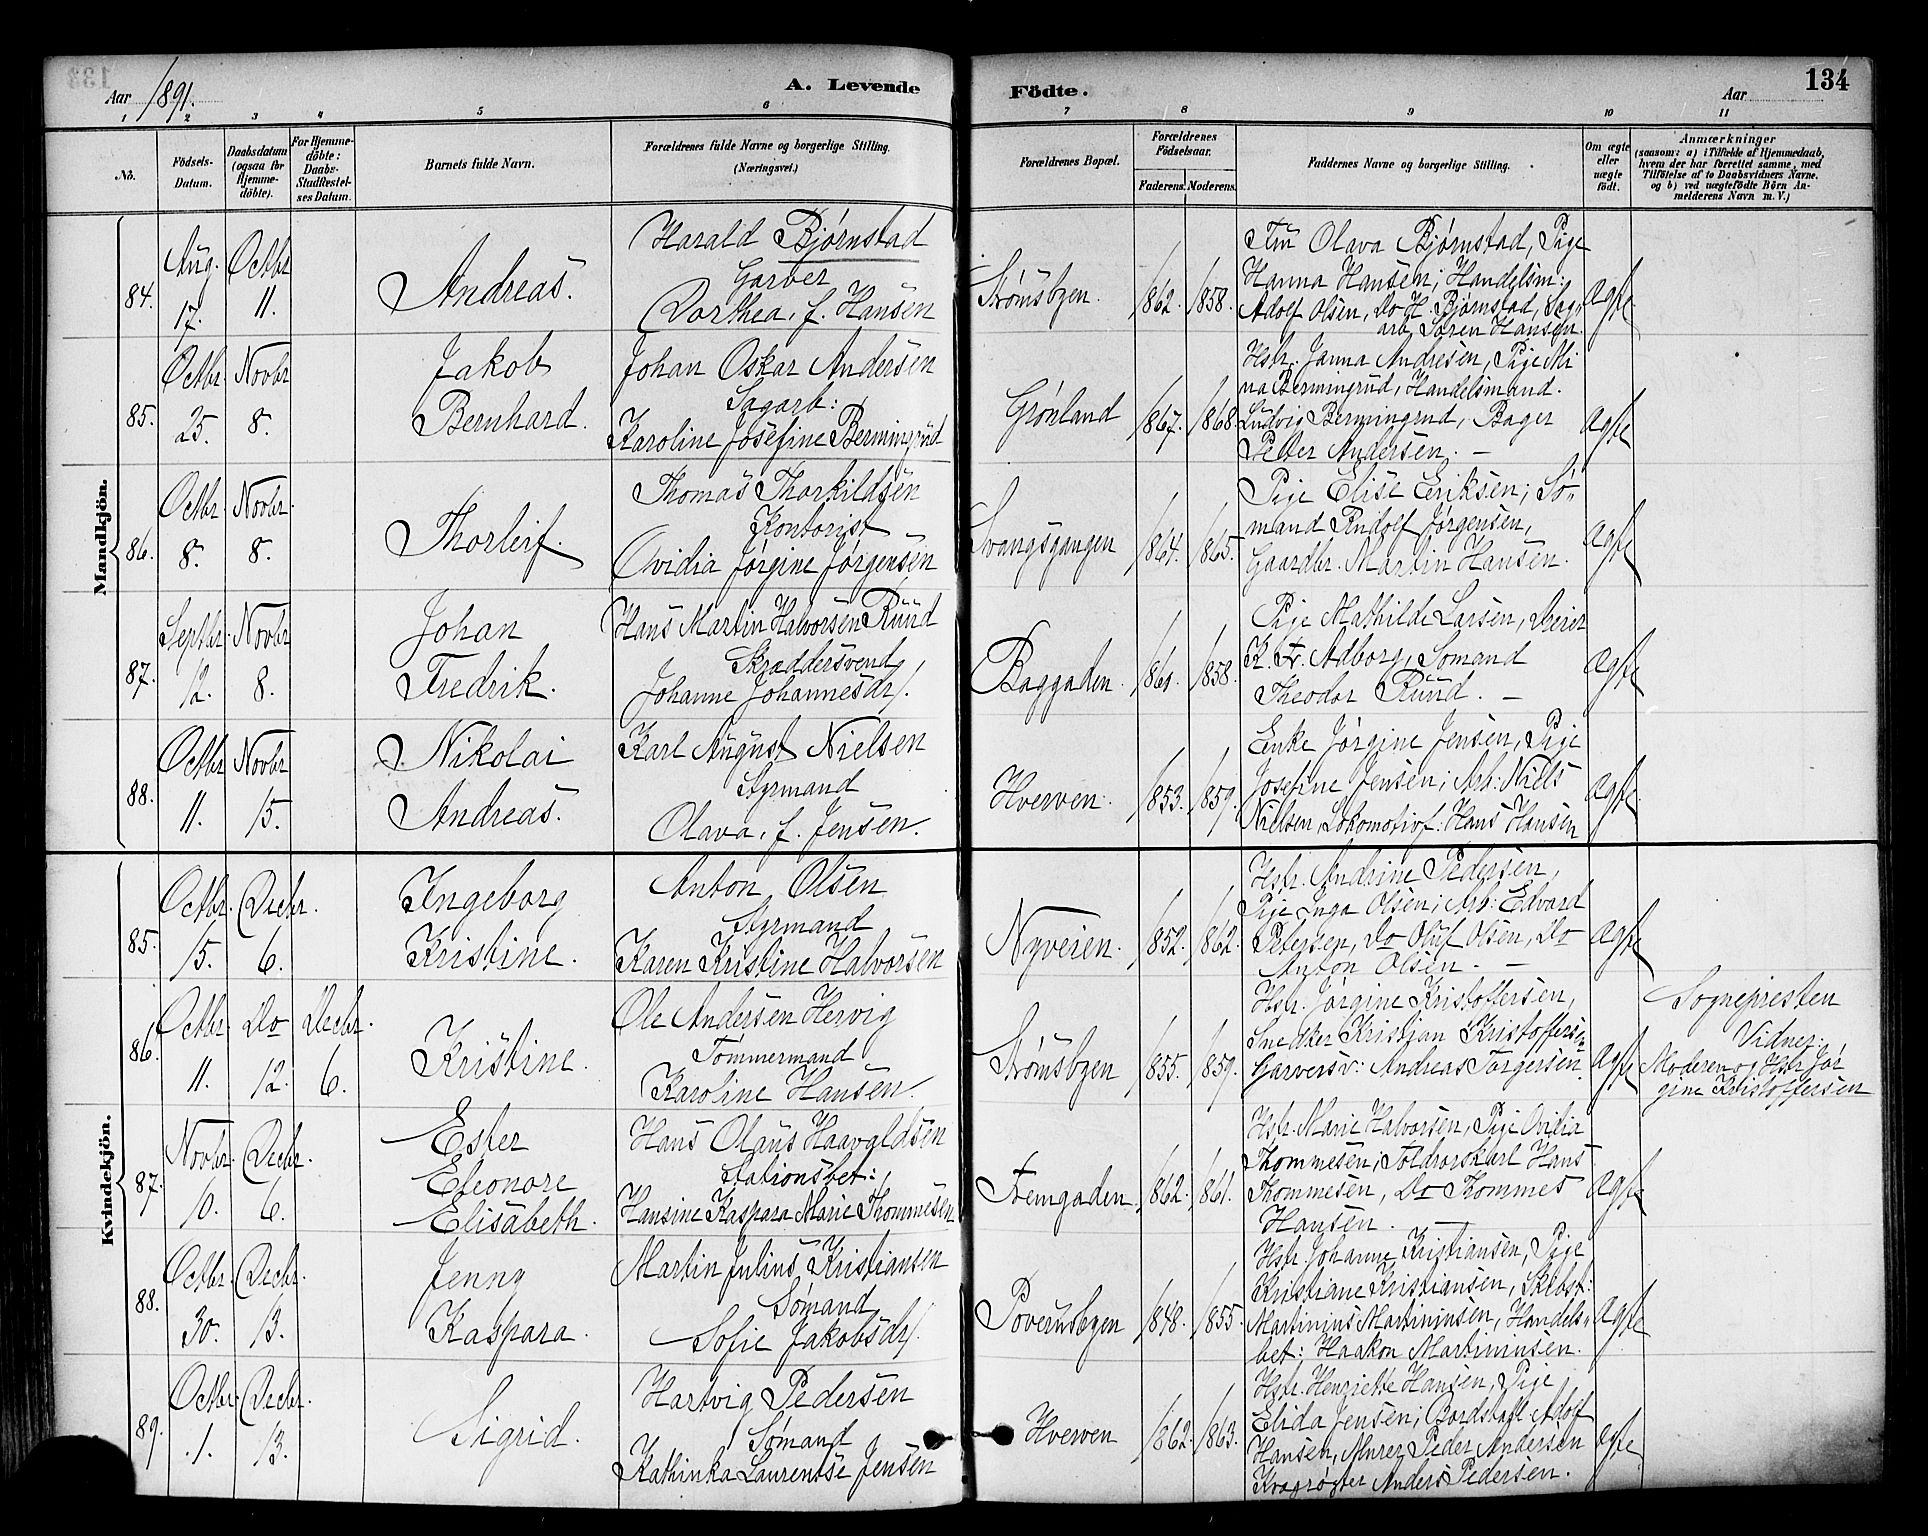 Aar 1891.
A. Levende
Födte.
134
Aar
1 2 3 4 5 6 7 8 9 10 11
No.
Födsels-Datum.
Daabsdatum (ogsaa for Hjemme-döbte).
For Hjemme-döbte: Daabs-Stadfæstel-ses Datum.
Barnets fulde Navn.
Forældrenes fulde Navne og borgerlige Stilling. (Næringsvei.)
Forældrenes Bopæl.
Forældrenes Födselsaar.
Faderens. Moderens.
Faddernes Navne og borgerlige Stilling.
Om ægte eller uægte födt.
Anmærkninger
(saasom: a) i Tilfælde af Hjemmedaab,
hvem der har forrettet samme, med
Tilföielse af to Daabsvidners Navne.
og b) ved uægtefödte Börn An-
melderens Navn m. V.)
Mandkjön.
84.
Aug. 17.
Octbr 11.
Andreas.
Harald Bjørnstad
Garver
Dorthea, f. Hansen
Strømsbyen.
1862. 1858.
Fru Olava Bjørnstad, Pige
Hanna Hansen; Handelsm:
Adolf Olsen, Do H. Bjørnstad, Sag-
arb. Søren Hansen.
ægte
85.
Octbr 25.
Novbr 8.
Jakob
Bernhard.
Johan Oskar Andersen
Sagarb:
Karoline Josefine Bermingrud
Grønland
1867. 1868.
Hstr. Janna Andresen, Pige Mi
na Bermingrud, Handelsmand.
Ludvig Bermingrud, Bager
Petter Andersen. –
ægte
86.
Octbr. 8.
Novbr. 8.
Thorleif.
Thomas Thorkildsen
Kontorist
Ovidia Jørgine Jørgensen
Svangsgangen
1864. 1865.
Pige Elise Eriksen; Sø-
mand Rudolf Jørgensen,
Gaardbr. Martin Hansen.
ægte
87.
Septbr. 12.
Novbr 8.
Johan
Fredrik.
Hans Martin Halvorsen Ruud
Skræddersvend
Johanne Johannesdr.
Baggaden.
1861. 1858.
Pige Mathilde Larsen, Deier
K. Fr. Adborg, Sømand
Theodor Ruud. –
ægte
88.
Octbr 11.
Novbr 15.
Nikolai
Andreas.
Karl August Nielsen
Styrmand
Olava, f. Jensen.
Hverven.
1853. 1859.
Enke Jørgine Jensen, Pige
Josefine Jensen; Arb: Niels
Nielsen, Lokomotivf: Hans Hansen
ægte
Kvindekjön.
85.
Octbr. 15.
Decbr. 6.
Ingeborg
Kristine.
Anton Olsen
Styrmand
Karen Kristine Halvorsen
Nyveien.
1852. 1862.
Hstr. Andrine Pedersen,
Pige Inga Olsen; Arb: Edvard
Petersen, Do Oluf Olsen, Do
Anton Olsen. –
ægte
86.
Octbr. 11.
Do 12.
Decbr. 6.
Kristine.
Ole Andersen Hervig
Tømmermand
Karoline Hansen.
Strømsbyen
1855. 1859.
Hstr. Jørgine Kristoffersen,
Snedker Kristian Kristoffersen
Garversv: Andreas Torgersen.
ægte
Sognepresten
Vidner:
Moderen og Hstr Jør
gine Kristoffersen
87.
Novbr. 10.
Decbr. 6.
Ester
Eleonore
Elisabeth.
Hans Olaus Haavaldsen
Stationsbet:
Hansine Kaspara Marie Thommesen
Fremgaden.
1862. 1861.
Hstr. Marie Halvorsen, Pige Ovidia
Thommesen; Toldrorskarl Hans
Thommesen, Do Thommes
Hansen.
ægte
88.
Octbr. 30.
Decbr. 13.
Jenny
Kaspara.
Martin Julius Kristiansen
Sømand
Sofie Jakobsdr.
Povernsbyen
1848. 1855.
Hstr. Johanne Kristiansen, Pige
Kristiane Kristiansen, Skibst:
Martinius Martiniusen, Handels-
bet: Haakon Martiniusen.
ægte
89.
Octbr. 1.
Decbr. 13.
Sigrid.
Hartvig Pedersen
Sømand
Kathinka Laurentse Jensen
Hverven
1862. 1863.
Hstr. Henriette Hansen, Pige
Elida Jensen; Bordstabl Adolf
Hansen, Murer Peder Andersen
Kragrøgter Anders Pedersen.
ægte